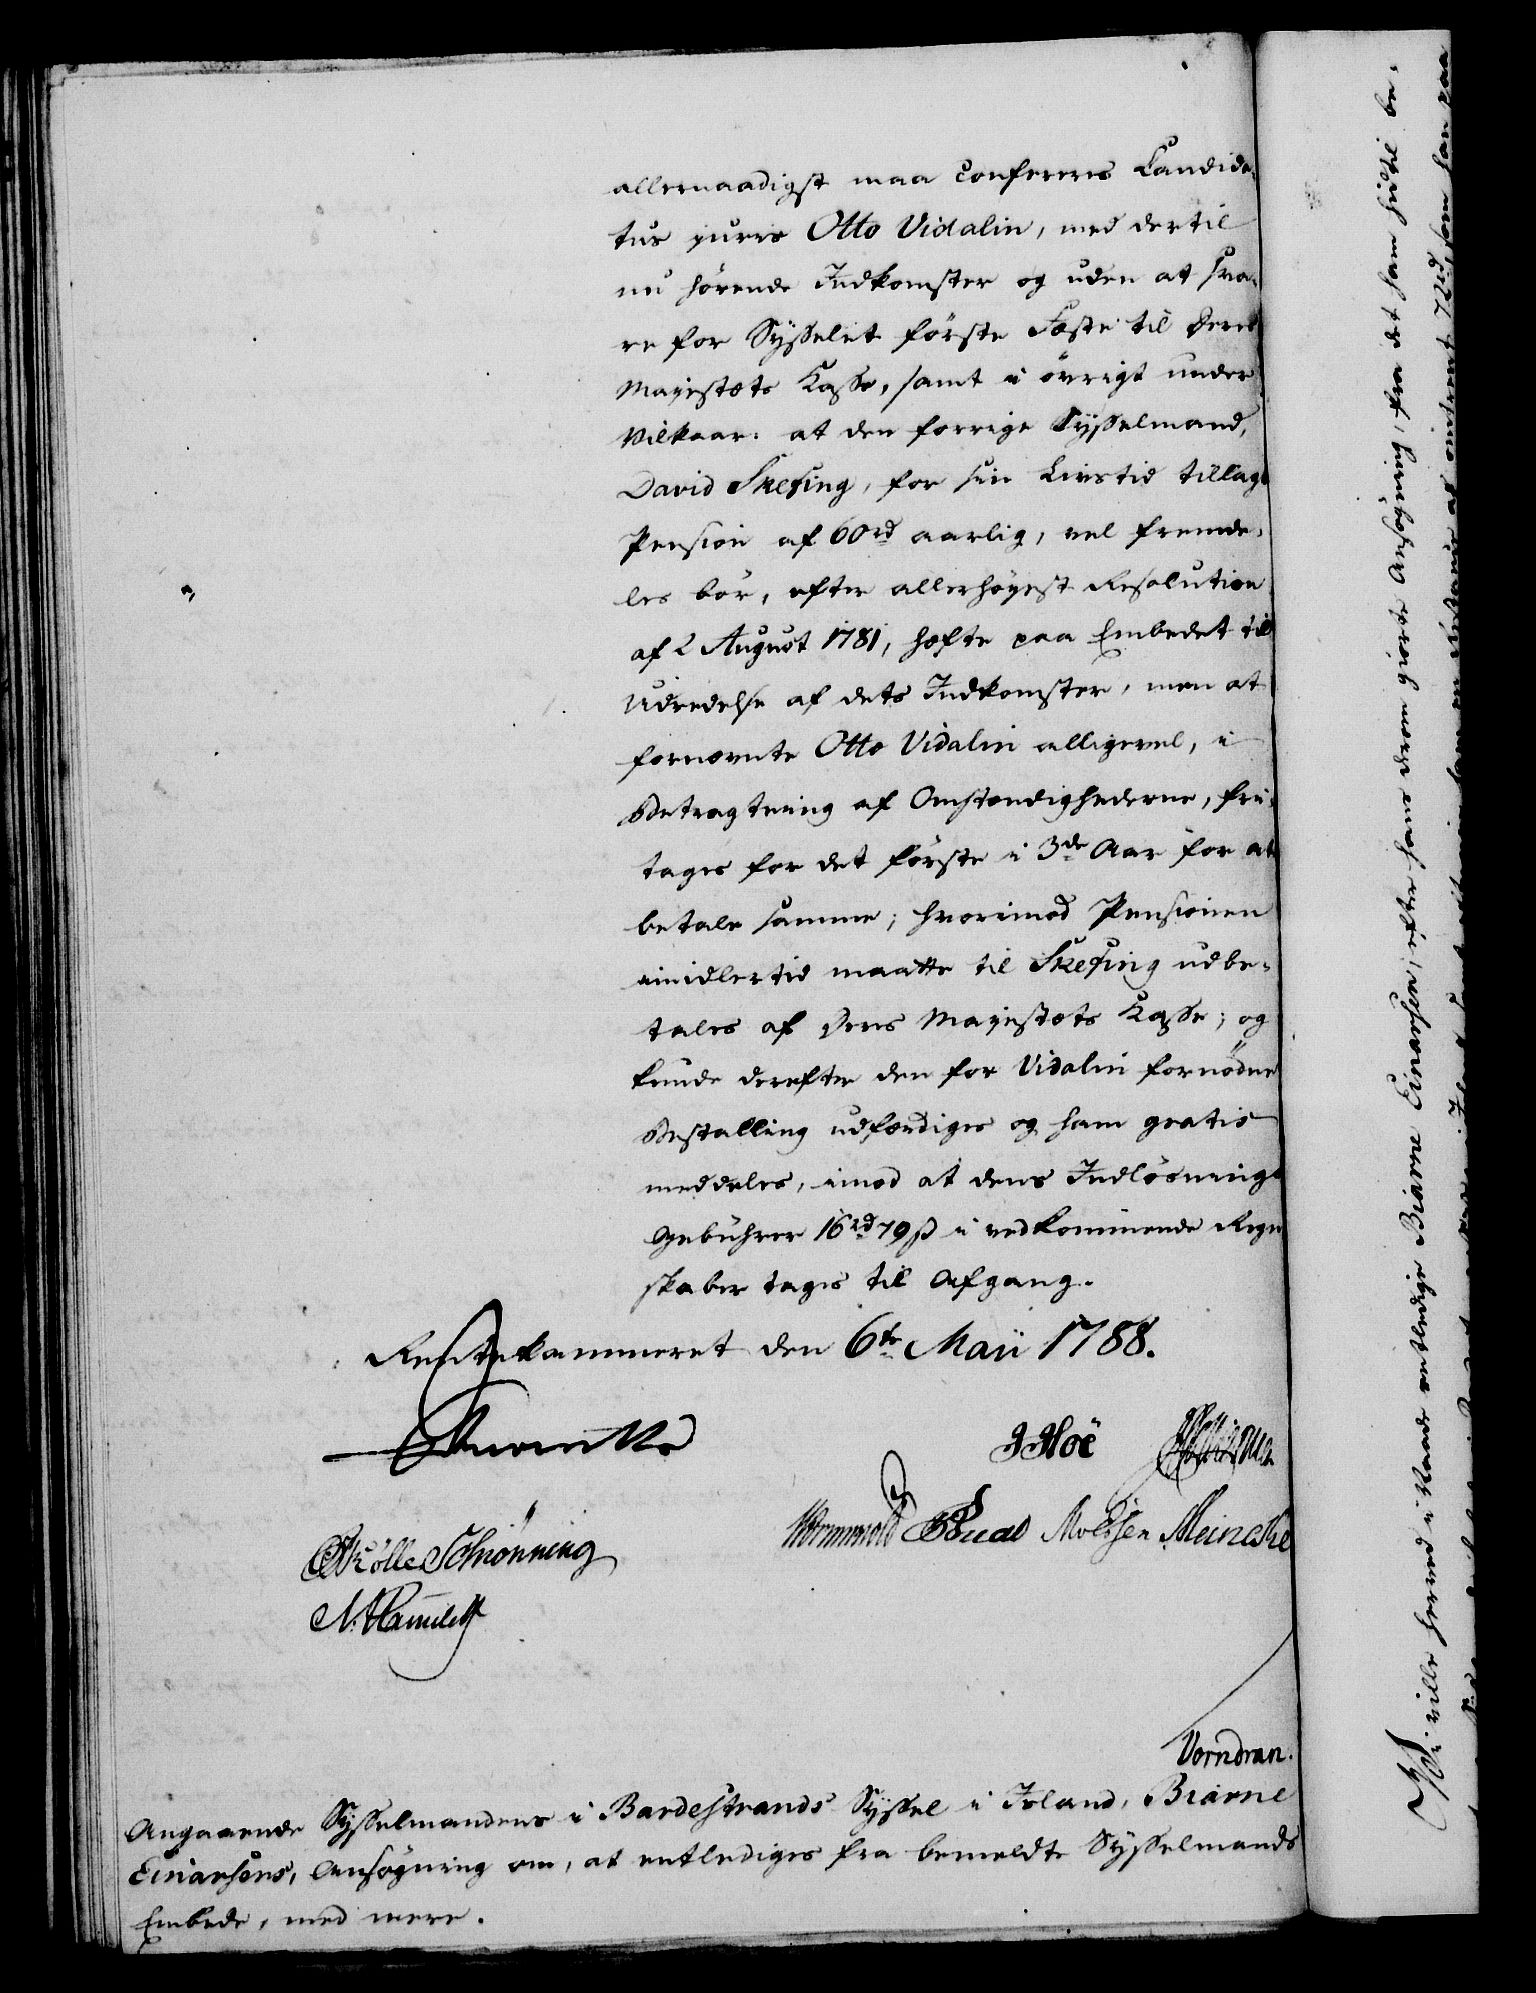 allernaadigst maa confereres Candida-
tus juris Otto Vidalin, med dertil
nu hörende Indkomster og uden at sva-
re for Sysselet første Fæste til Deres
Majestæts Kasse, samt i övrigt under
Vilkaar: at den forrige Sysselmand,
David Skefing, for sin Livstid tillagt
Pension af 60 rd aarlig, vel fremde-
les bör, efter allerhöyest Resolution
af 2 August 1781, hæfte paa Embedet til
Udredelse af dets Indkomster, men at
fornævnte Otto Vidalin alligevel, i
Betragtning af Omstændighederne, fri-
tages for det förste i 3de Aar for at
betale samme; hvorimod Pensionen
imidlertid maatte til Skefing udbe-
tales af Deres Majestæts Kasse; og
kunde derefter den for Vidalin fornödne
Bestalling udfærdiges og ham gratis
meddeles, imod at dens Indlösnings
Gebührer 16 rd 79 ß i vedkommende Regn
skaber tages til Afgang.
Rentekammeret den 6te Maii 1788.
J Höe
Wormskiold Meincke
Schiönning
Vorndran.
Angaaende Sysselmandens i Bardestrands Syssel i Island, Biarne
Einarsens, Ansögning om, at entlediges fra bemeldte Sysselmands
Embede, med mere.
Vi ville herved i Naade entledige Biarne Einarsen, efter hans derom giorte Ansögning, fra det ham hidtil be-